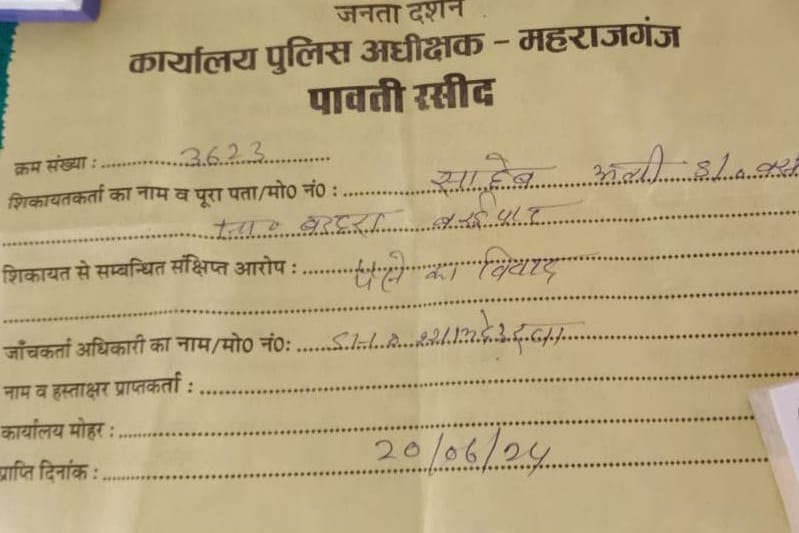 जनता दर्शन
कार्यालय पुलिस अधीक्षक - महराजगंज
पावती रसीद
क्रम संख्या : 3623
शिकायतकर्ता का नाम व पूरा पता/मो0 नं0 : साहेब अली S/o
शिकायत से सम्बन्धित संक्षिप्त आरोप : पैसे का विवाद
जाँचकर्ता अधिकारी का नाम/मो0 नं0:
नाम व हस्ताक्षर प्राप्तकर्ता :
कार्यालय मोहर :
प्राप्ति दिनांक : 20/06/24